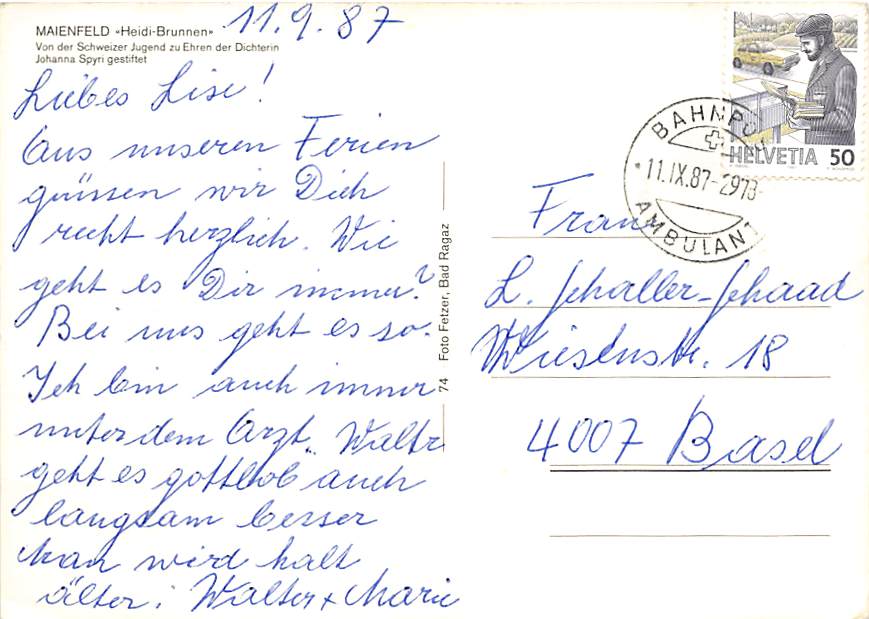 11.9.87
MAIENFELD «Heidi-Brunnen»
Von der Schweizer Jugend zu Ehren der Dichterin
Johanna Spyri gestiftet
Liebes Lise!
Aus unseren Ferien
grüssen wir Dich
recht herzlich. Wie
geht es Dir immer?
Bei uns geht es so.
Ich bin auch immer
unter dem Arzt. Walter
geht es gottlob auch
langsam besser
Man wird halt
älter! Walter + Marie
74 Foto Fetzer, Bad Ragaz
HELVETIA 50
BAHNPO
11.IX.87-2973
AMBULANT
Frau
L. Schaller-Schaad
Wiesenstr. 18
4007 Basel